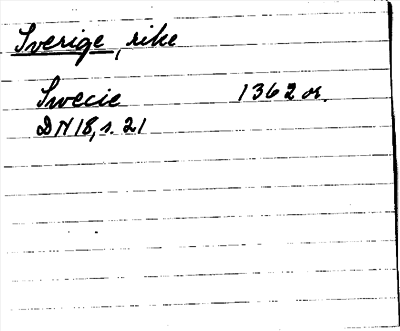 Sverige, rike
Swecie 1362 or.
DN 18, s. 21